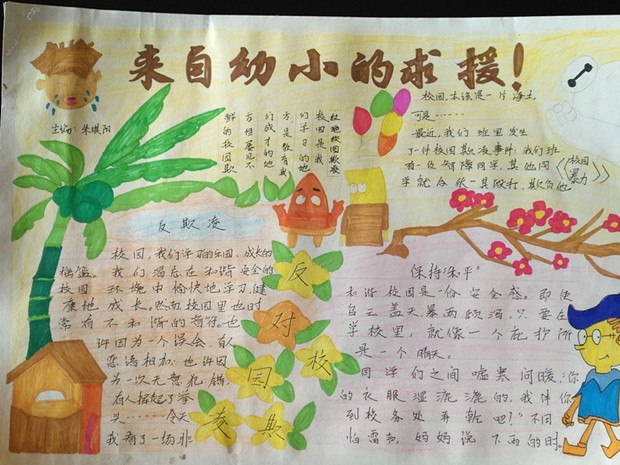 来自幼小的求援!
主编:朱
杜绝校园欺凌
校园是我
们学习的地
方,是教育我
们成才的地
方但屡见不
鲜的校园欺
校园,本该是一片净土,
可是……
最近,我们班里发生
了一件校园欺凌事件,我们班
有一位智障同学,其他同
学就合伙一具殴打,欺负他
《校园暴力》
反欺凌
校园,我们学习的乐园,成长的
摇篮。我们渴忘在和谐安全的
校园环境中愉快地学习,健
康地成长。然而校园里也时
常有不和谐的音符。也
许因为一个误会,盲人
恶语相加,也许因
为一次无意化错,
有人抡起了拳
头……今天
我看了一场非
反对校园凌欺
保持"和平"
和谐校园是一份安全感。即使
乌云盖天暴雨倾泻,只要在
学校里,就像一个庇护所
是一个晴天。
同学们之间嘘寒问暖:"你
的衣服湿漉漉的,我伴你
到校务处再乾吧!"不用
怕雷声,妈妈说下雨的时